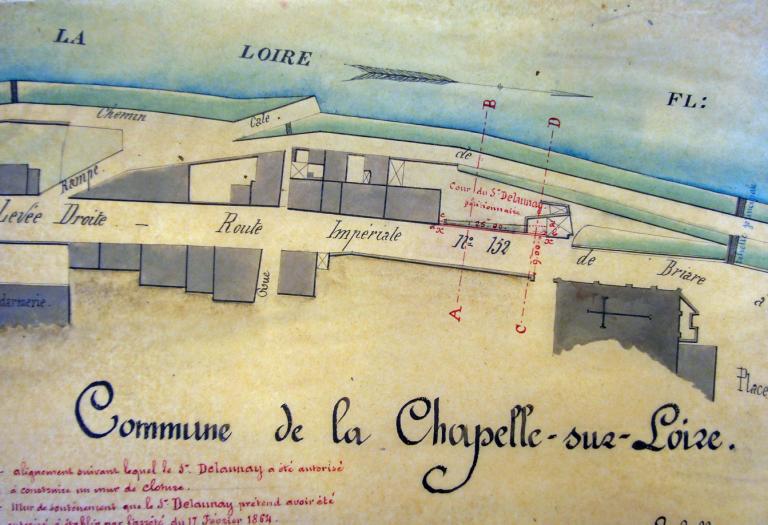 LA LOIRE FL:
Chemin Cale de
Rampe
B
D
Cour du Sr Delaunay
pétitionnaire
Levée Droite - Route Impériale No 152 de Briare à
25.00
9.00
x
x
Rue
A
C
darmerie.
Place
Commune de la Chapelle-sur-Loire.
- alignement suivant lequel le Sr Delaunay a été autorisé
à construire un mur de cloture.
- Mur de soutènement que le Sr Delaunay prétend avoir été
autorisé à établir par l'arrêté du 17 Février 1864.